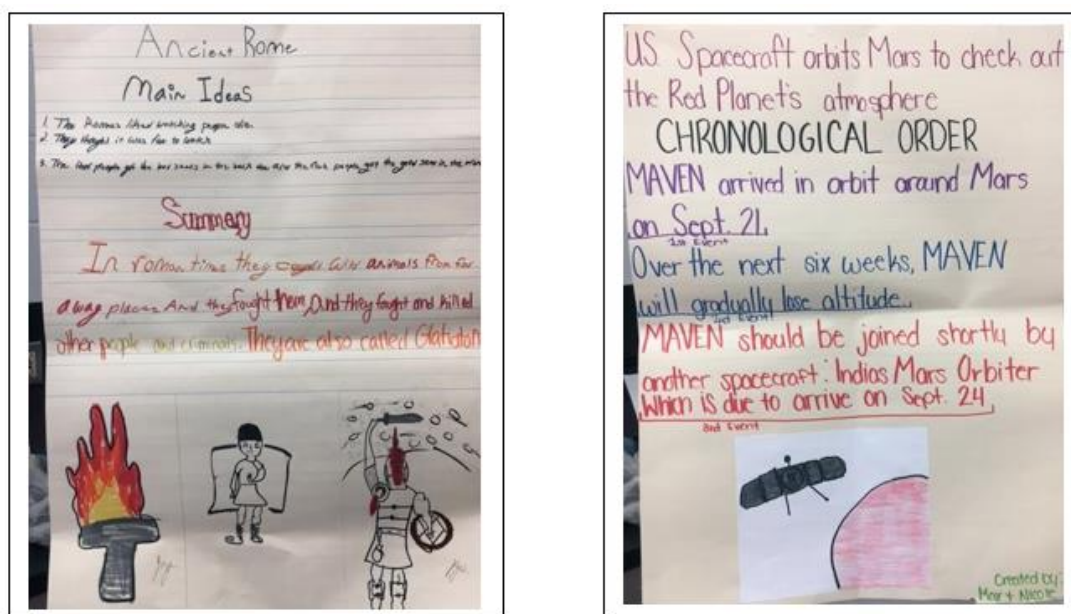 Ancient Rome
Main Ideas
1. The Romans liked watching people die.
2. They thought it was fun to watch
3. The people got the seats in the back the rich people got the good seats in the
Summary
In roman times they wild animals from far
away places And they fought them, and they fought and killed
other people and criminals. They are also called
U.S. Spacecraft orbits Mars to check out
the Red Planet's atmosphere
CHRONOLOGICAL ORDER
MAVEN arrived in orbit around Mars
on Sept. 21.
1st Event
Over the next six weeks, MAVEN
will gradually lose altitude.
2nd Event
MAVEN should be joined shortly by
another spacecraft: Indias Mars Orbiter
Which is due to arrive on Sept. 24
3rd Event
Created by:
+ Nicole